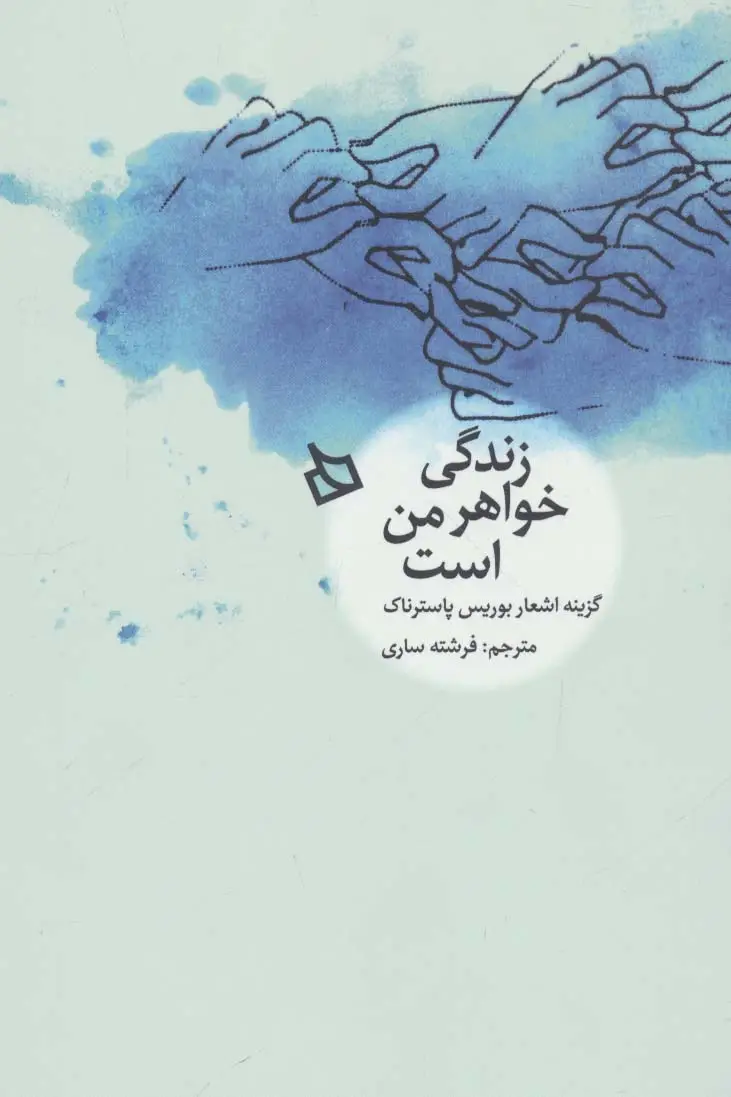 زندگی
خواهر من
است
گزینه اشعار بوریس پاسترناک
مترجم: فرشته ساری